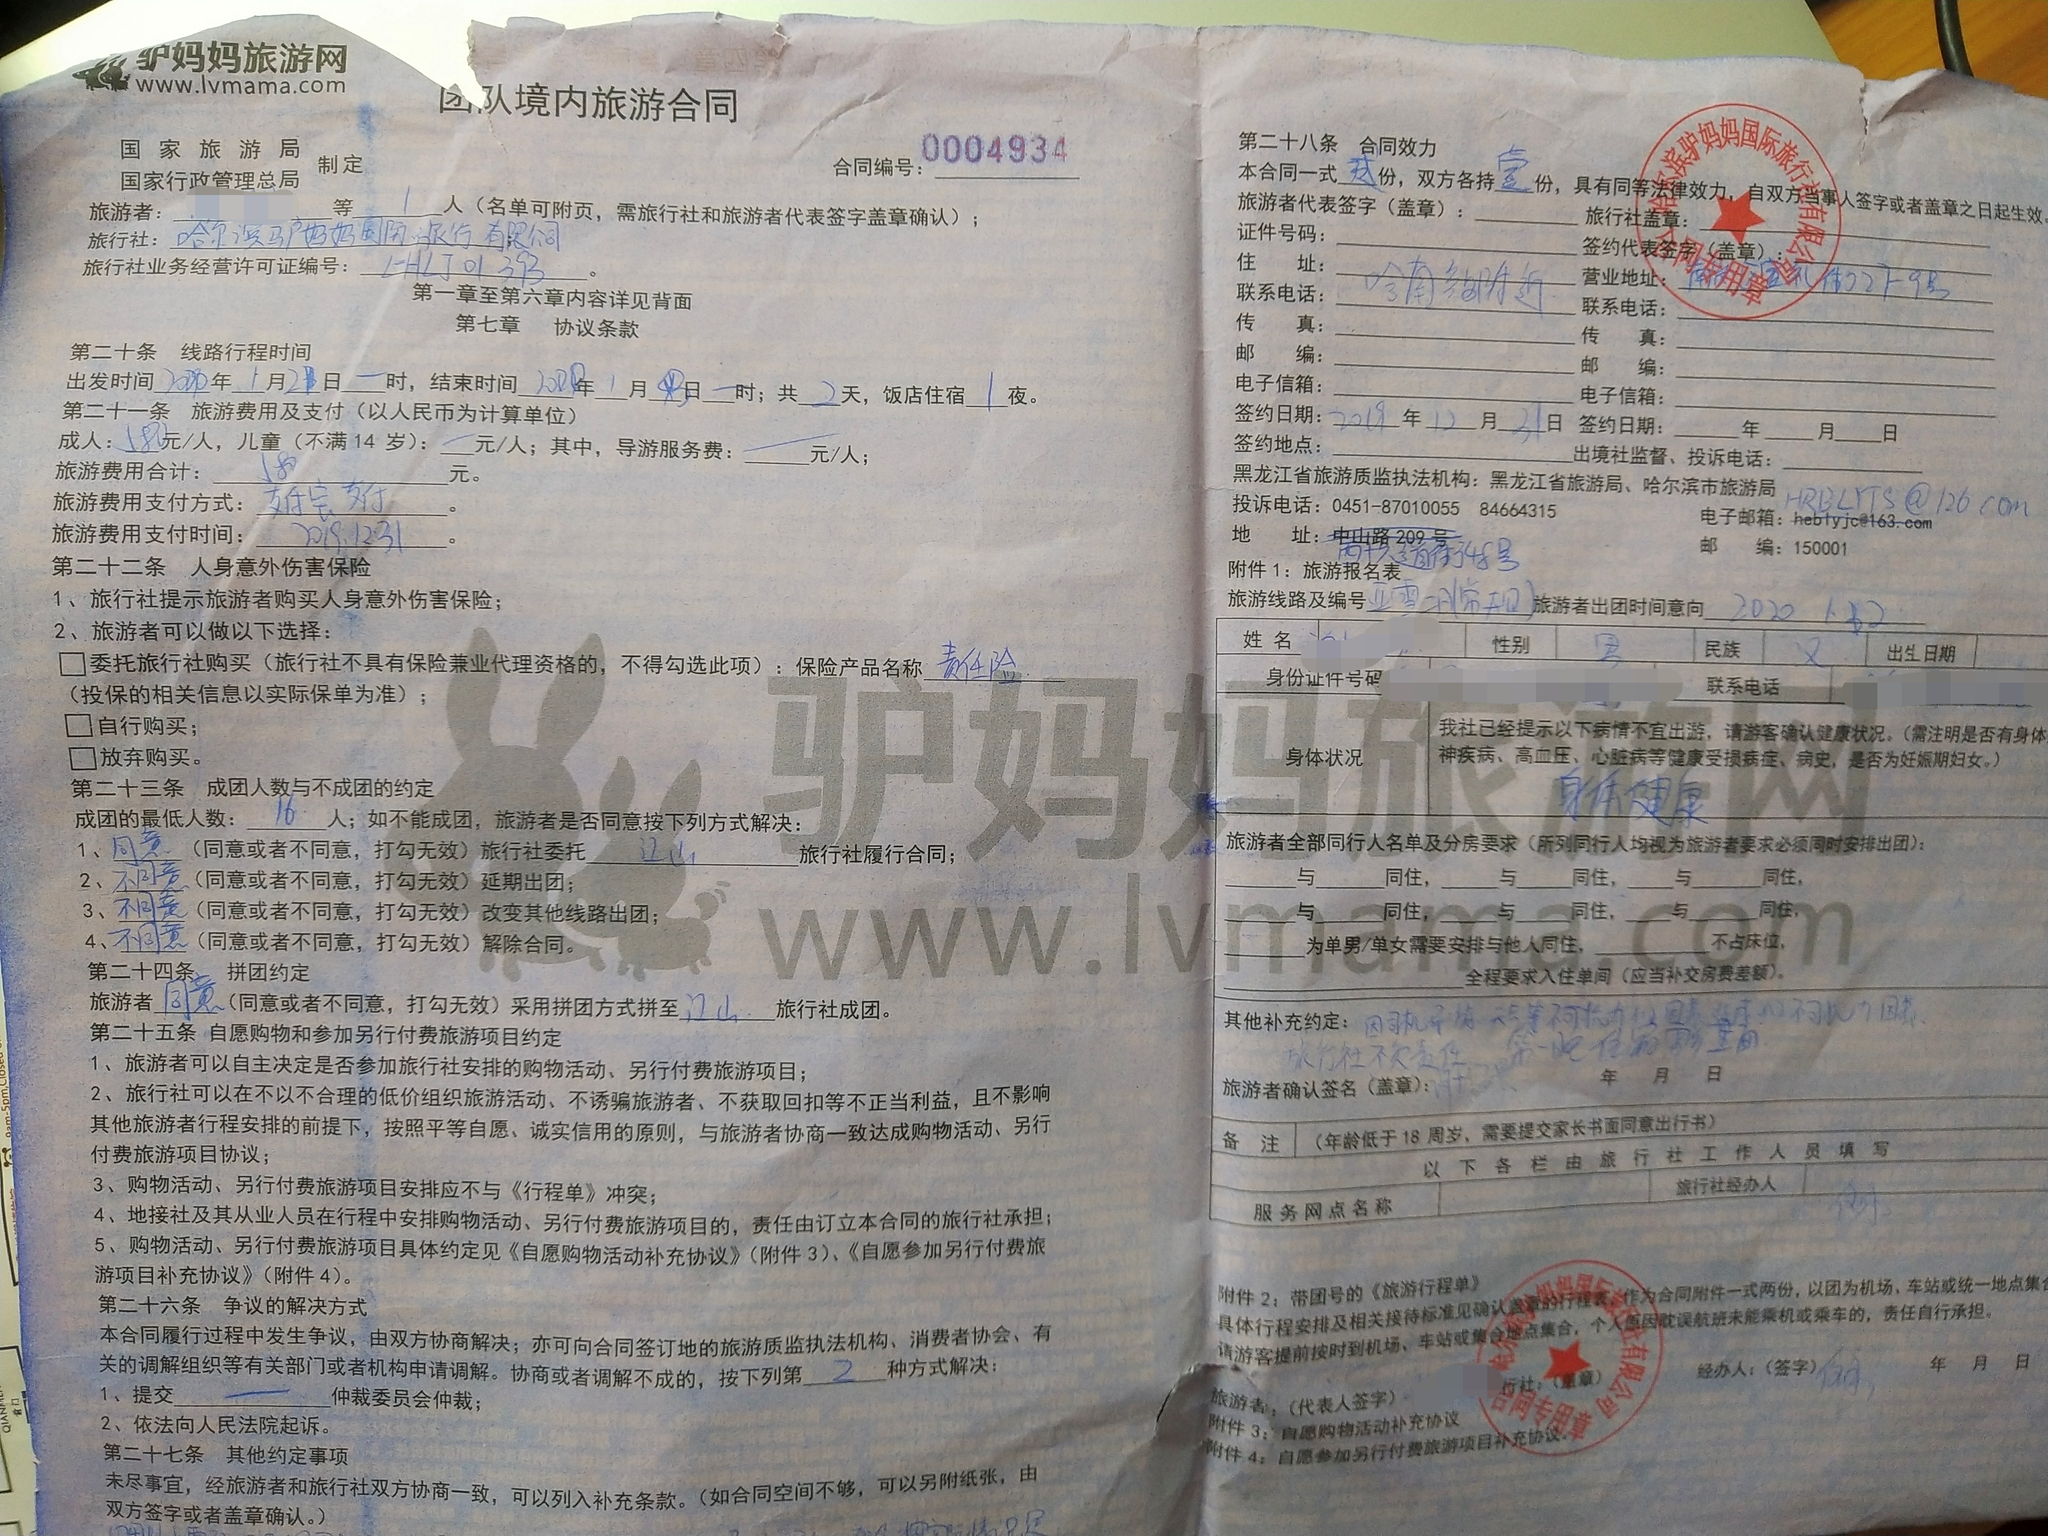 驴妈妈旅游网
www.lvmama.com
团队境内旅游合同
国家旅游局
国家行政管理总局
制定
合同编号：0004934
旅游者： 等 1 人（名单可附页，需旅行社和旅游者代表签字盖章确认）；
旅行社：哈尔滨驴妈妈国际旅行有限公司
旅行社业务经营许可证编号：L-HLJ01393。
第一章至第六章内容详见背面
第七章 协议条款
第二十条 线路行程时间
出发时间2020年1月2日一时，结束时间 年1月 日一时；共2天，饭店住宿1夜。
第二十一条 旅游费用及支付（以人民币为计算单位）
成人：580元/人，儿童（不满14岁）：一元/人；其中，导游服务费： 元/人；
旅游费用合计：580元。
旅游费用支付方式：支付宝支付。
旅游费用支付时间：2019.12.31。
第二十二条 人身意外伤害保险
1、旅行社提示旅游者购买人身意外伤害保险；
2、旅游者可以做以下选择：
□委托旅行社购买（旅行社不具有保险兼业代理资格的，不得勾选此项）：保险产品名称责任险
（投保的相关信息以实际保单为准）；
□自行购买；
□放弃购买。
第二十三条 成团人数与不成团的约定
成团的最低人数：16人；如不能成团，旅游者是否同意按下列方式解决：
1、同意（同意或者不同意，打勾无效）旅行社委托 江山 旅行社履行合同；
2、不同意（同意或者不同意，打勾无效）延期出团；
3、不同意（同意或者不同意，打勾无效）改变其他线路出团；
4、不同意（同意或者不同意，打勾无效）解除合同。
第二十四条 拼团约定
旅游者同意（同意或者不同意，打勾无效）采用拼团方式拼至江山旅行社成团。
第二十五条 自愿购物和参加另行付费旅游项目约定
1、旅游者可以自主决定是否参加旅行社安排的购物活动、另行付费旅游项目；
2、旅行社可以在不以不合理的低价组织旅游活动、不诱骗旅游者、不获取回扣等不正当利益，且不影响
其他旅游者行程安排的前提下，按照平等自愿、诚实信用的原则，与旅游者协商一致达成购物活动、另行
付费旅游项目协议；
3、购物活动、另行付费旅游项目安排应不与《行程单》冲突；
4、地接社及其从业人员在行程中安排购物活动、另行付费旅游项目的，责任由订立本合同的旅行社承担；
5、购物活动、另行付费旅游项目具体约定见《自愿购物活动补充协议》（附件3）、《自愿参加另行付费旅
游项目补充协议》（附件4）。
第二十六条 争议的解决方式
本合同履行过程中发生争议，由双方协商解决；亦可向合同签订地的旅游质监执法机构、消费者协会、有
关的调解组织等有关部门或者机构申请调解。协商或者调解不成的，按下列第2种方式解决：
1、提交 一 仲裁委员会仲裁；
2、依法向人民法院起诉。
第二十七条 其他约定事项
未尽事宜，经旅游者和旅行社双方协商一致，可以列入补充条款。（如合同空间不够，可以另附纸张，由
双方签字或者盖章确认。）
第二十八条 合同效力
本合同一式贰份，双方各持壹份，具有同等法律效力，自双方当事人签字或者盖章之日起生效。
旅游者代表签字（盖章）： 旅行社盖章：
证件号码： 签约代表签字（盖章）：
住 址：哈南 附近 营业地址：
联系电话： 联系电话：
传 真： 传 真：
邮 编： 邮 编：
电子信箱： 电子信箱：
签约日期：2019年12月31日 签约日期： 年 月 日
签约地点： 出境社监督、投诉电话：
黑龙江省旅游质监执法机构：黑龙江省旅游局、哈尔滨市旅游局
投诉电话：0451-87010055 84664315 电子邮箱：heblyjc@163.com HRBLYTS@126.com
地 址：中山路209号 邮 编：150001
附件1：旅游报名表
旅游线路及编号 旅游者出团时间意向 2020
姓名 性别 男 民族 汉 出生日期
身份证件号码 联系电话
身体状况
我社已经提示以下病情不宜出游，请游客确认健康状况。（需注明是否有身体
神疾病、高血压、心脏病等健康受损病症、病史，是否为妊娠期妇女。）
身体健康
旅游者全部同行人名单及分房要求（所列同行人均视为旅游者要求必须同时安排出团）：
与 同住， 与 同住， 与 同住，
与 同住， 与 同住， 与 同住，
为单男/单女需要安排与他人同住， 不占床位，
全程要求入住单间（应当补交房费差额）。
其他补充约定：
旅行社不负责任
旅游者确认签名（盖章）： 年 月 日
备 注 （年龄低于18周岁，需要提交家长书面同意出行书）
以下各栏由旅行社工作人员填写
服务网点名称 旅行社经办人
附件2：带团号的《旅游行程单》
具体行程安排及相关接待标准见确认盖章的行程表，作为合同附件一式两份，以团为机场、车站或统一地点集合
请游客提前按时到机场、车站或集合地点集合，个人原因耽误航班未能乘机或乘车的，责任自行承担。
旅游者：（代表人签字） 行社：（盖章） 经办人：（签字） 年 月 日
附件3：自愿购物活动补充协议
附件4：自愿参加另行付费旅游项目补充协议。
哈尔滨驴妈妈国际旅行社有限公司
合同专用章
驴妈妈旅游网
www.lvmama.com